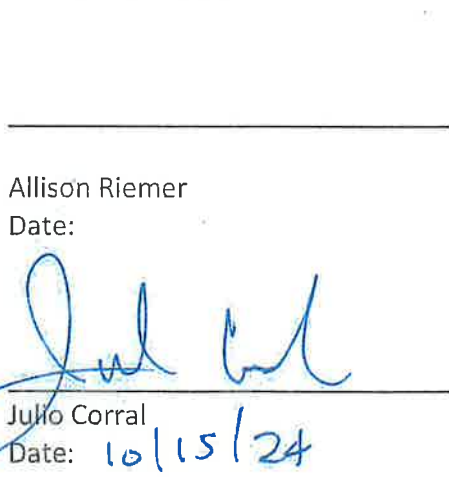 Allison Riemer
Date:
Julio Corral
Date: 10/15/24